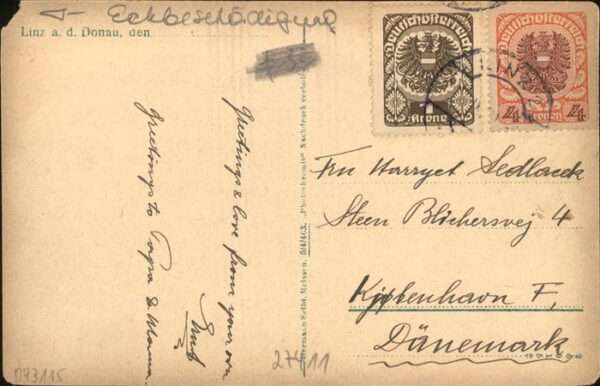 ← Eckbeschädigung
Linz a. d. Donau, den
Deutschösterreich
1
Krone
Deutschösterreich
4
Kronen
LINZ
Greetings & love from your own
Greetings to Papa & Mama
Fru Harryet Sedlaček
Steen Blichersvej 4
Kjøbenhavn F,
Dänemark
27411
073115